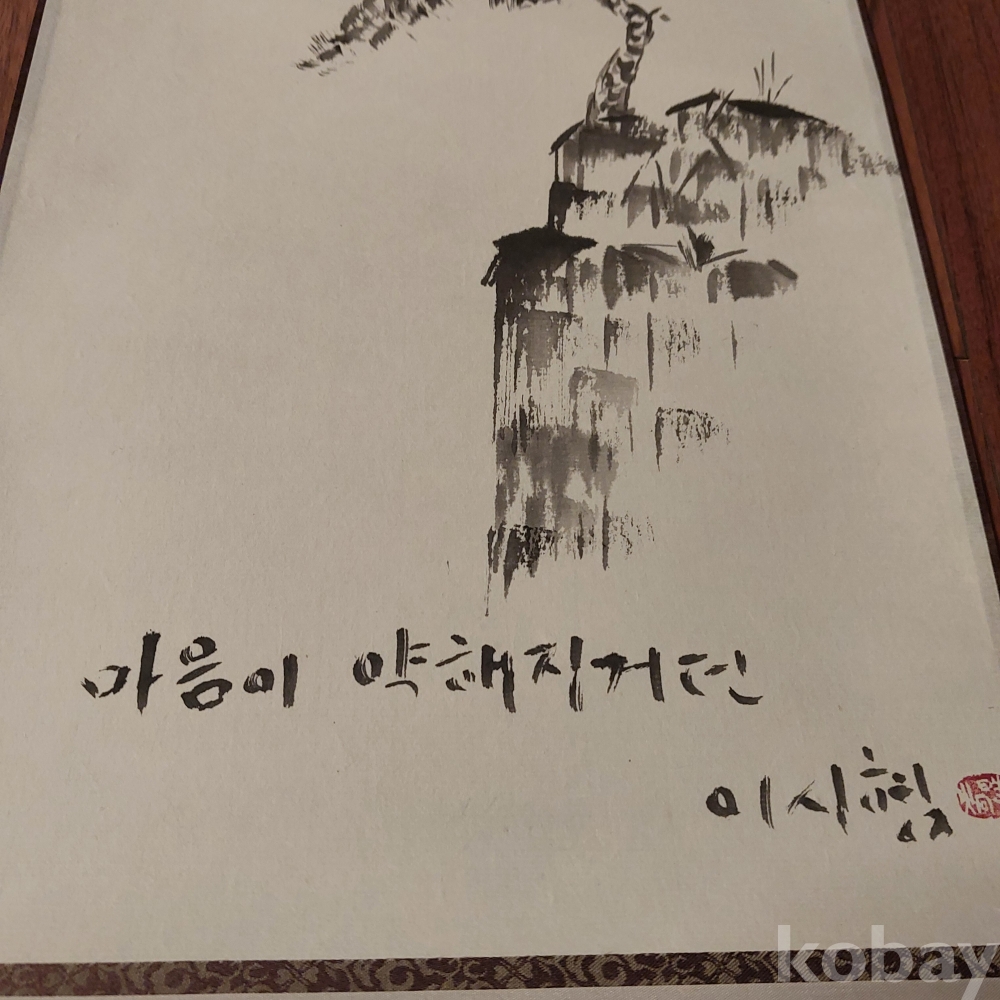 마음이 약해지거던
이시형
kobay